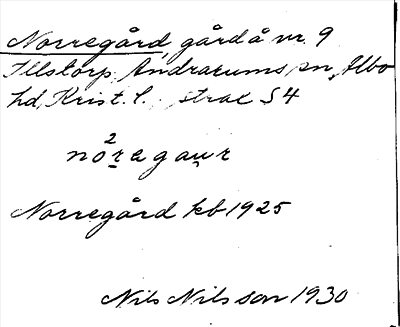 Norregård, gård å nr. 9
Illstorp, Andrarums sn, Albo
hd, Krist. l., strax S 4
nò²ragau̯r
Norregård kb 1925
Nils Nilsson 1930